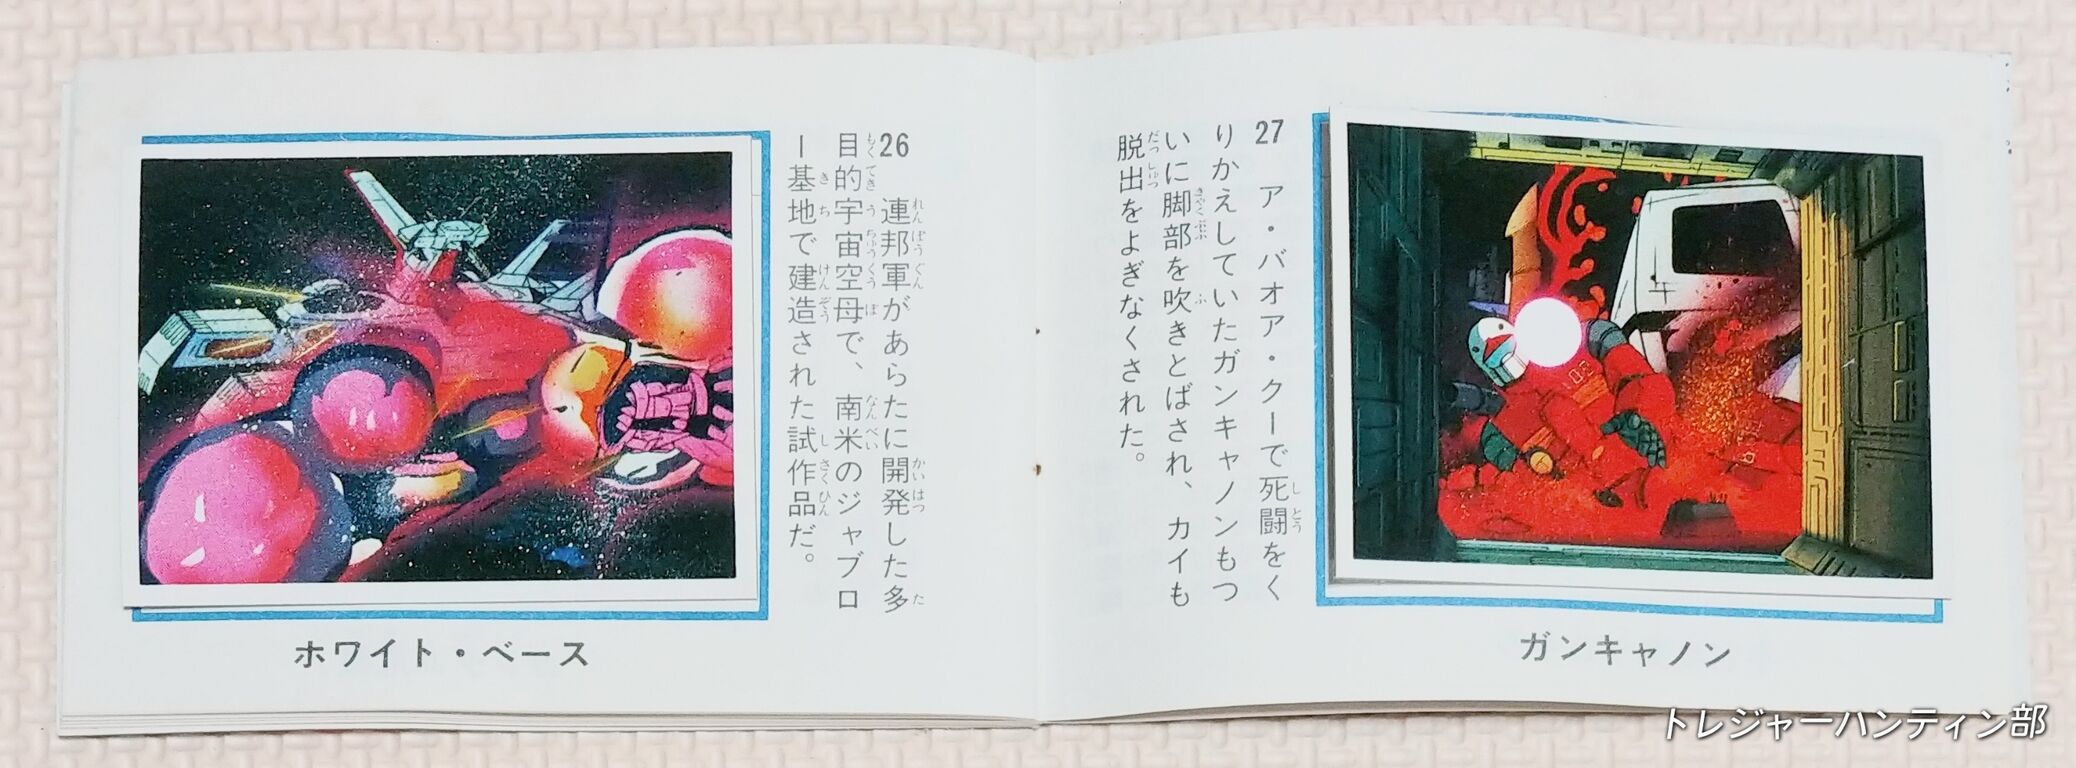 26 連邦軍があらたに開発した多
目的宇宙空母で、南米のジャブロ
ー基地で建造された試作品だ。
ホワイト・ベース
27 ア・バオア・クーで死闘をく
りかえしていたガンキャノンもつ
いに脚部を吹きとばされ、カイも
脱出をよぎなくされた。
ガンキャノン
トレジャーハンティン部